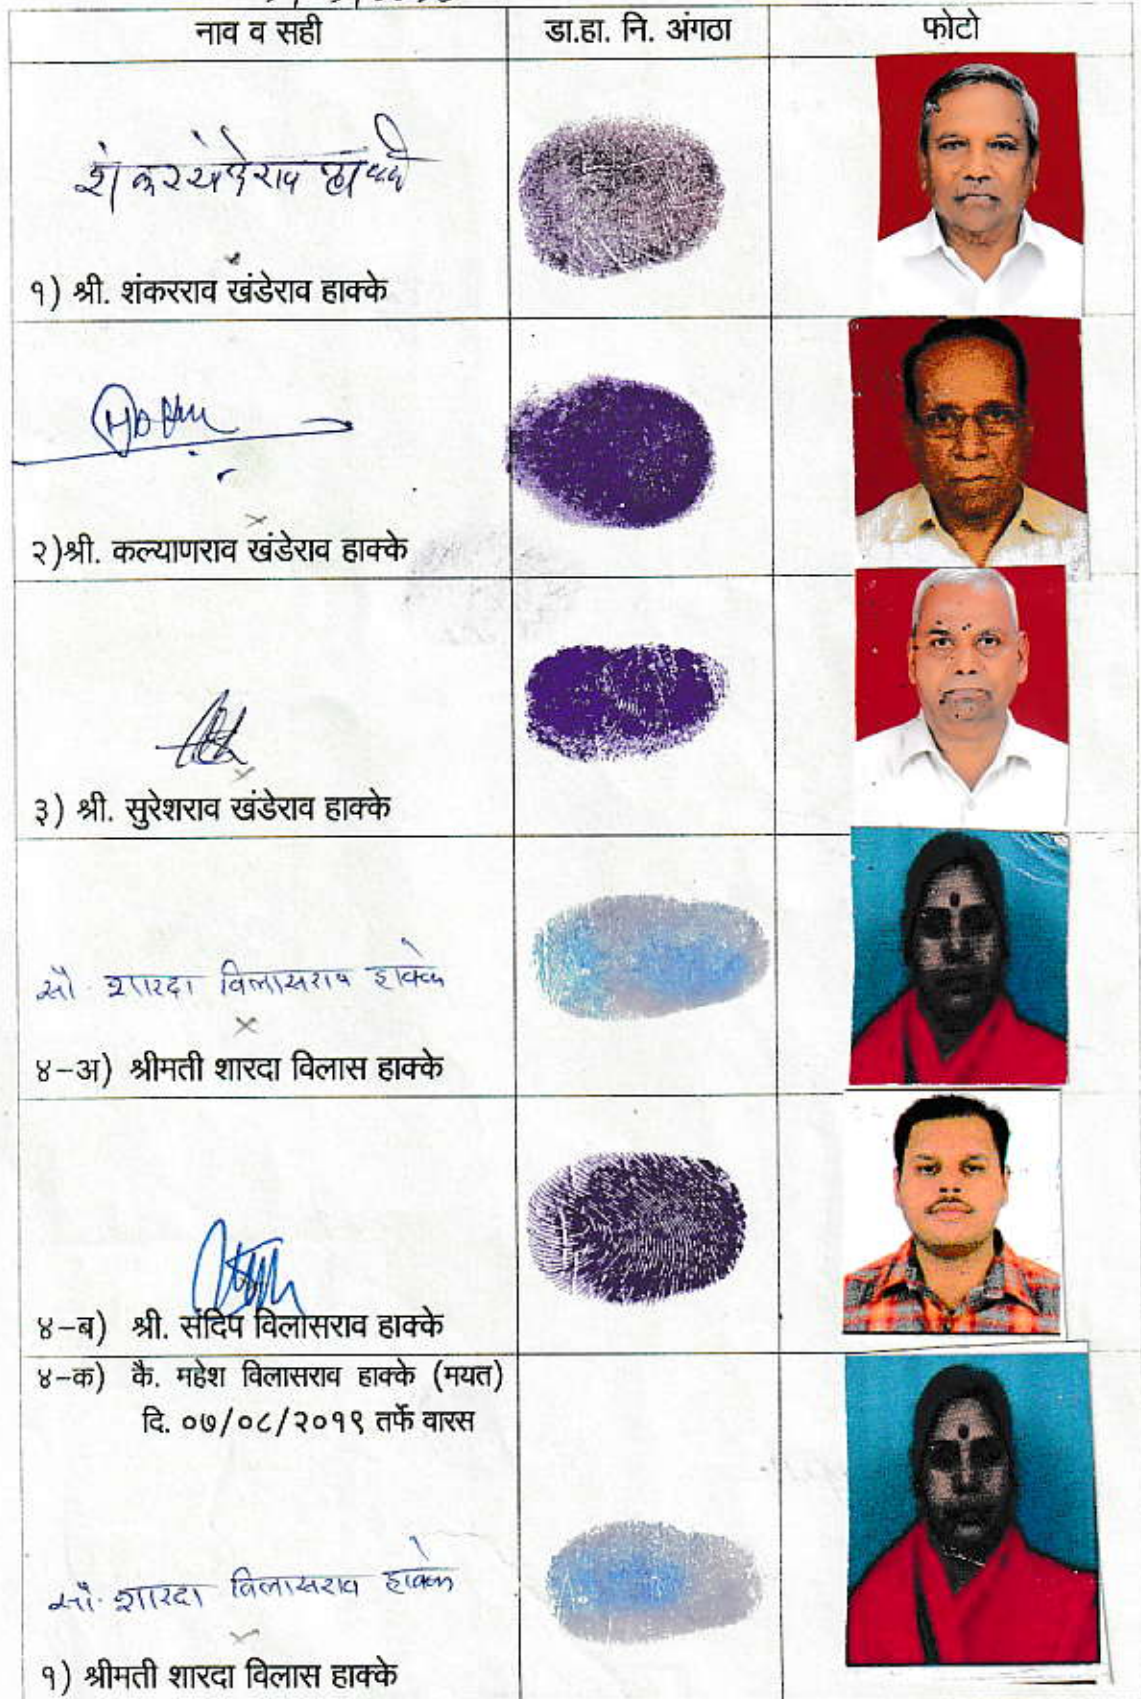 नाव व सही डा.हा. नि. अंगठा फोटो
शंकर खंडेराव हाक्के
१) श्री. शंकरराव खंडेराव हाक्के
२)श्री. कल्याणराव खंडेराव हाक्के
३) श्री. सुरेशराव खंडेराव हाक्के
सौ. शारदा विलासराव हाक्के
४-अ) श्रीमती शारदा विलास हाक्के
४-ब) श्री. संदिप विलासराव हाक्के
४-क) कै. महेश विलासराव हाक्के (मयत)
दि. ०७/०८/२०१९ तर्फे वारस
सौ. शारदा विलासराव हाक्के
१) श्रीमती शारदा विलास हाक्के